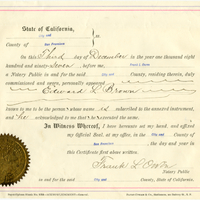 State of California,
City and
County of San Francisco
On this Third day of December in the year one thousand eight
hundred and ninety-seven before me,
a Notary Public in and for the said City and County, residing therein, duly
commissioned and sworn, personally appeared
Edward L. Brown
known to me to be the person whose name is subscribed to the annexed instrument,
and he acknowledged to me that he executed the same.
In Witness Whereof, I have hereunto set my hand, and affixed
my Official Seal, at my office, in the City and County of San Francisco, the day and year in
this Certificate first above written.
Frank L. Owen
Notary Public
in and for the said City and County, State of California.